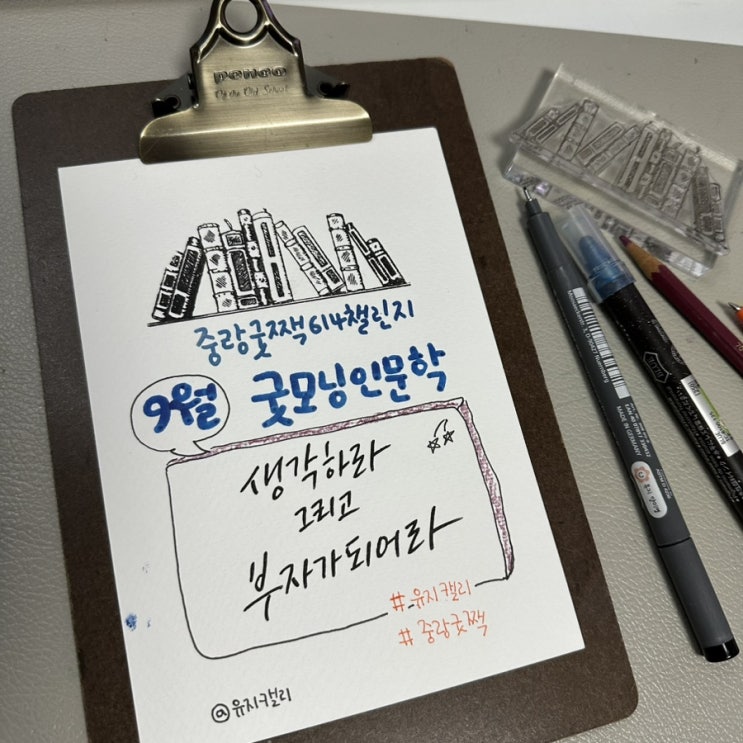 penco
중랑굿짹614챌린지
9월
굿모닝인문학
생각하라
그리고
부자가되어라
#_유지캘리
#중랑굿짹
@유지캘리
MADE IN GERMANY